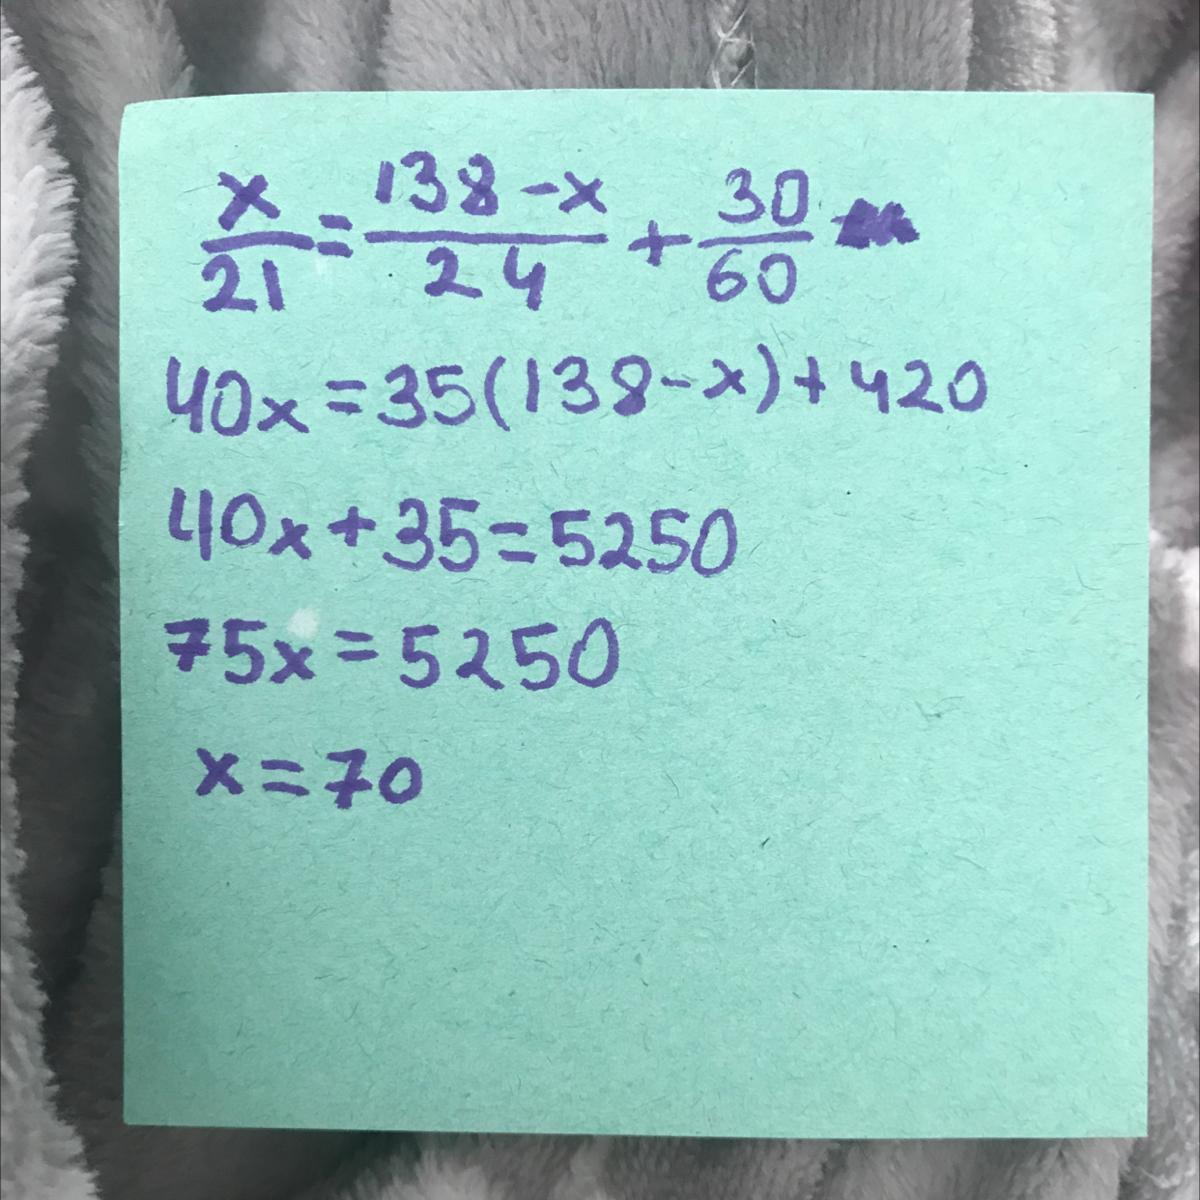 x/21 = 138-x/24 + 30/60
40x = 35(138-x) + 420
40x + 35 = 5250
75x = 5250
x = 70